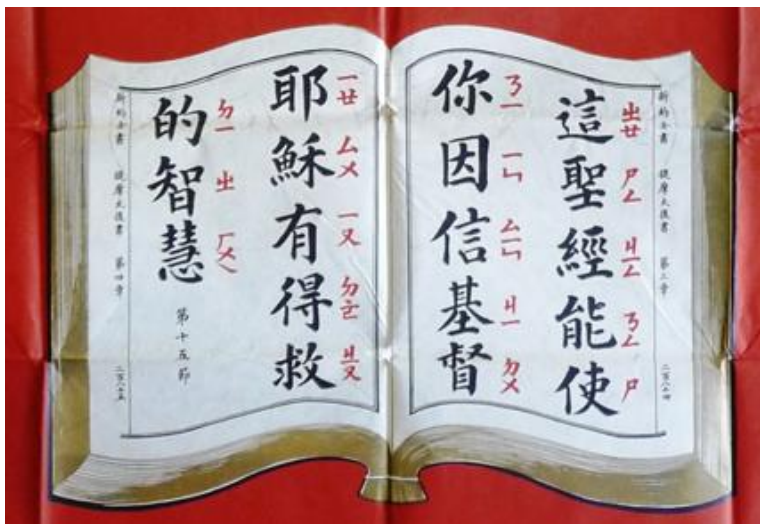 新約全書 提摩太後書 第三章 二百八十四
這聖經能使
ㄓㄜ ㄕㄥ ㄐㄧㄥ ㄋㄥ ㄕ
你因信基督
ㄋㄧ ㄧㄣ ㄙㄧㄣ ㄐㄧ ㄉㄨ
耶穌有得救
ㄧㄝ ㄙㄨ ㄧㄡ ㄉㄜ ㄐㄧㄡ
的智慧
ㄉㄧ ㄓ ㄏㄨㄟ
第十五節
新約全書 提摩太後書 第四章 二百八十五